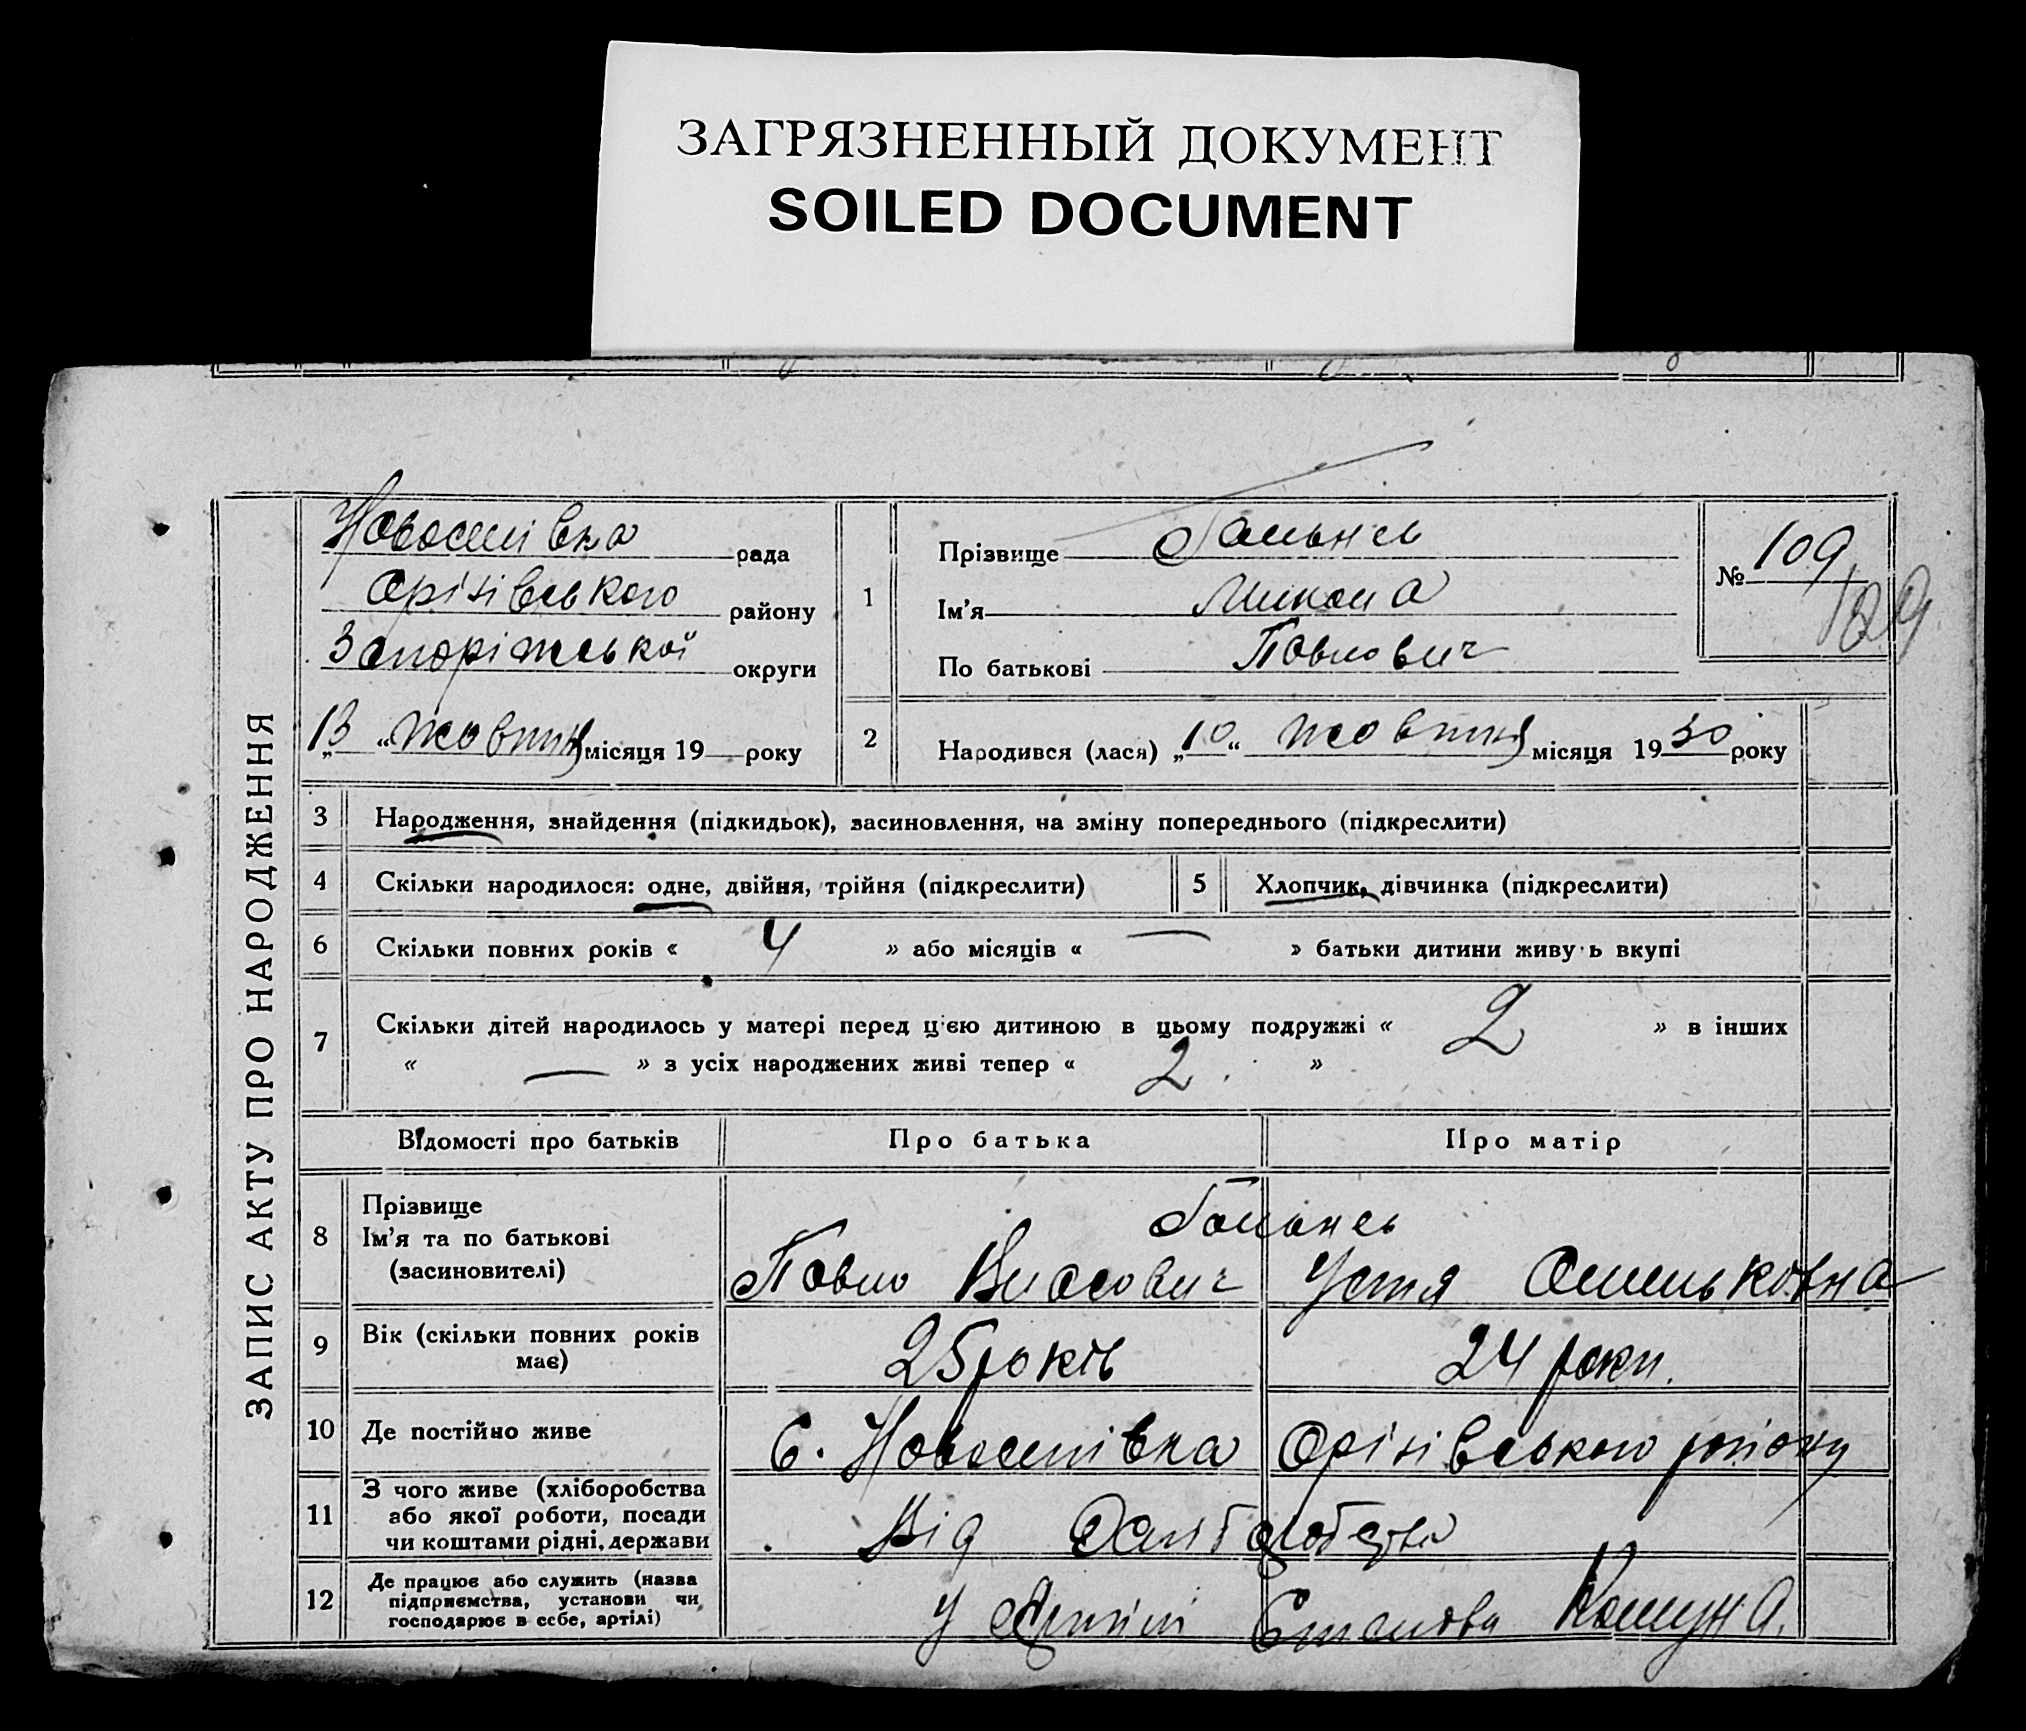 ЗАГРЯЗНЕННЫЙ ДОКУМЕНТ
SOILED DOCUMENT
ЗАПИС АКТУ ПРО НАРОДЖЕННЯ
Новоселівка рада
Орізівського району
Запоріжської округи
„13“ жовтня місяця 19 року
1
Прізвище
Ім'я Микола
По батькові Павлович
№ 109
109
2 Народився (лася) „10“ жовтня місяця 1930 року
3 Народження, знайдення (підкидьок), засиновлення, на зміну попереднього (підкреслити)
4 Скільки народилося: одне, двійня, трійня (підкреслити)
5 Хлопчик, дівчинка (підкреслити)
6 Скільки повних років « 4 » або місяців « — » батьки дитини живу ь вкупі
7 Скільки дітей народилось у матері перед цією дитиною в цьому подружжі « 2 » в інших
« — » з усіх народжених живі тепер « 2 »
Відомості про батьків Про батька Про матір
8 Прізвище
Ім'я та по батькові
(засиновителі)
Павло Власович Устя Омельковна
9 Вік (скільки повних років
має)
25 років 24 роки.
10 Де постійно живе С. Новоселівка Орізівського району
11 З чого живе (хліборобства
або якої роботи, посади
чи коштами рідні, держави
Від хліборобства
12 Де працює або служить (назва
підприємства, установи чи
господарює в себе, артілі)
У Артілі Комуна.